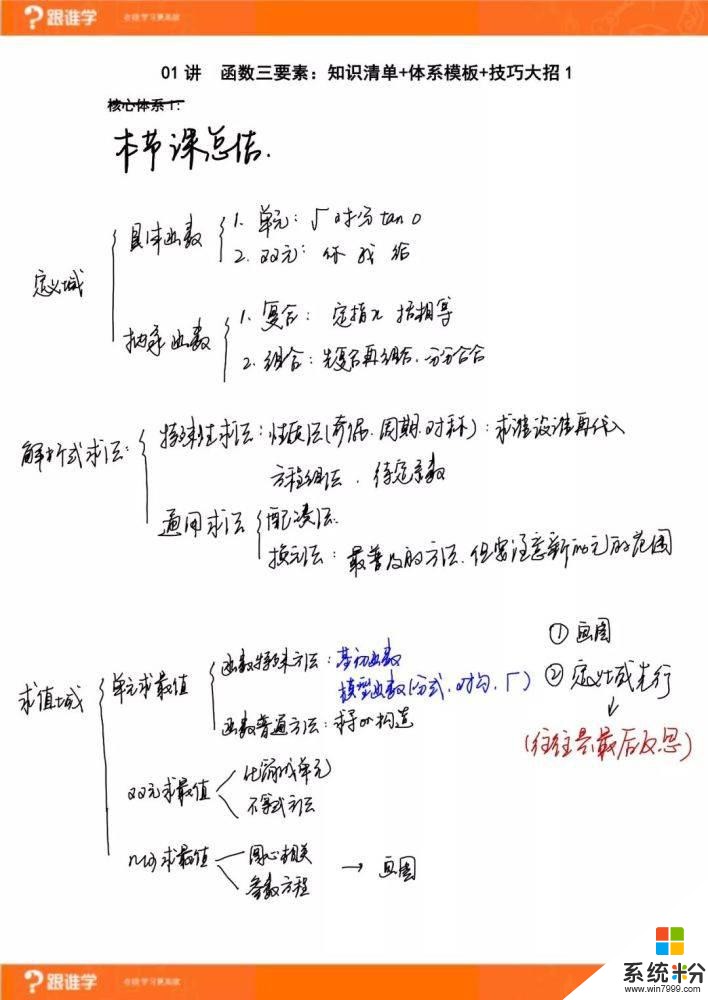 跟谁学 在线学习更高效
01 讲 函数三要素：知识清单+体系模板+技巧大招 1
核心体系 1:
本节课总结.
定义域
具体函数
1. 单元: √ 对分 tan 0
2. 双元: 你 我 给
抽象函数
1. 复合: 定指x 括相等
2. 组合: 先复合再组合. 分分合合
解析式求法:
特殊性求法: 性质法(奇偶. 周期. 对称): 求谁设谁再代入
方程组法. 待定系数
通用求法
配凑法.
换元法: 最普及的方法. 但要注意新的元的范围
求值域
单元求最值
函数特殊方法: 基初函数
模型函数(分式. 对勾. √)
函数普通方法: 求导or构造
双元求最值
化简成单元
不等式方法
n元求最值
同心相关
参数方程
→ 画图
① 画图
② 定义域先行
↓
(往往是最后反思)
跟谁学 在线学习更高效
系统粉
www.win7999.com